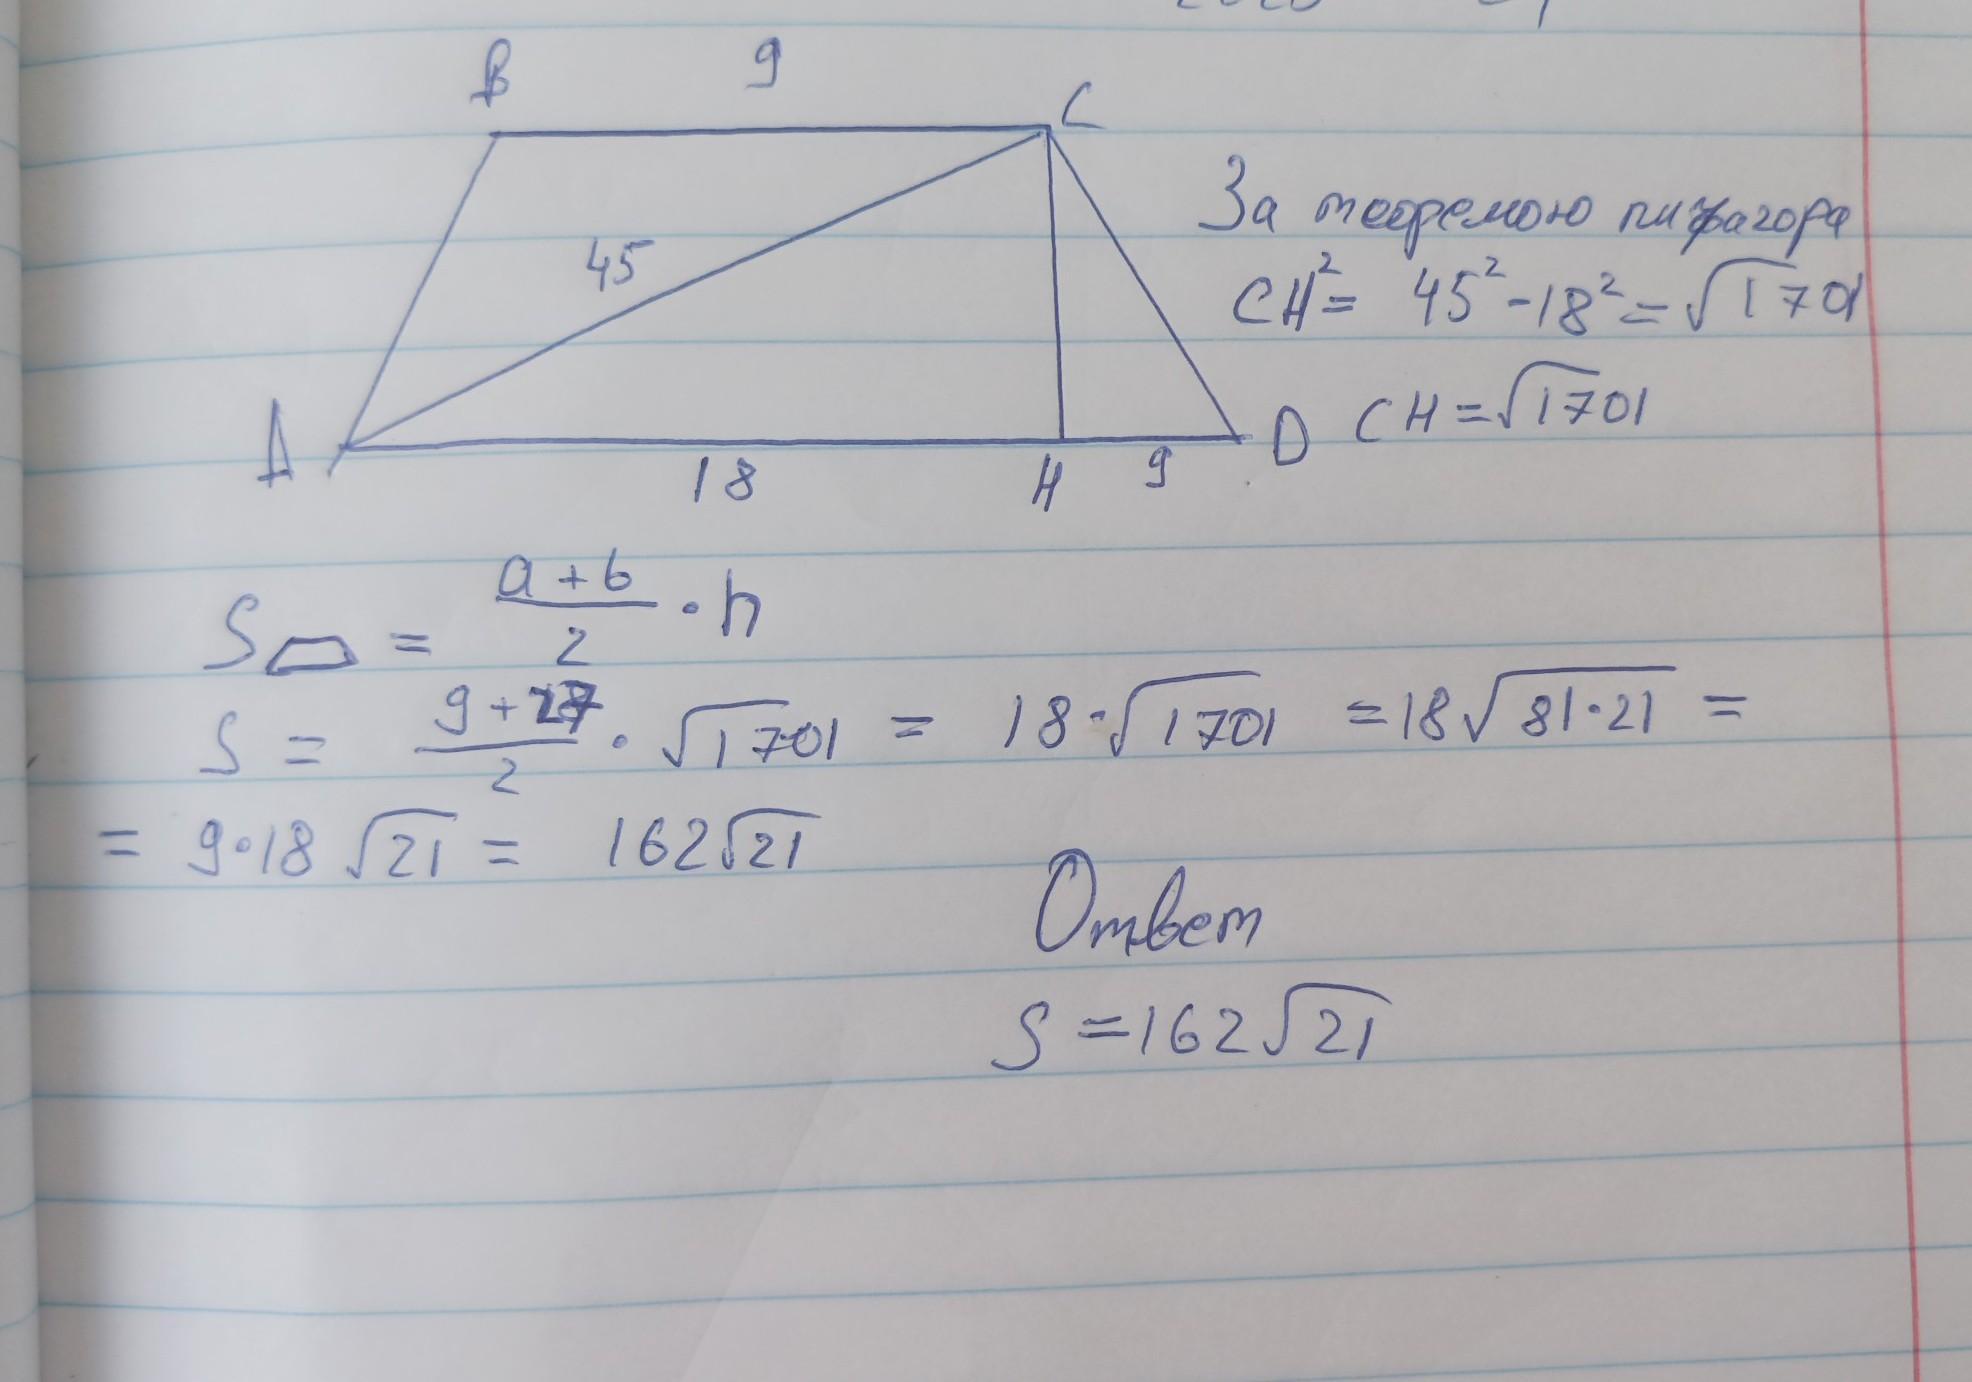 B 9 C
45
За теоремою пифагора
CH² = 45² - 18² = √1701
CH = √1701
A 18 H 9 D
S▱ = a + b / 2 · h
S = 9 + 27 / 2 · √1701 = 18 · √1701 = 18√81·21 =
= 9·18 √21 = 162√21
Ответ
S = 162√21